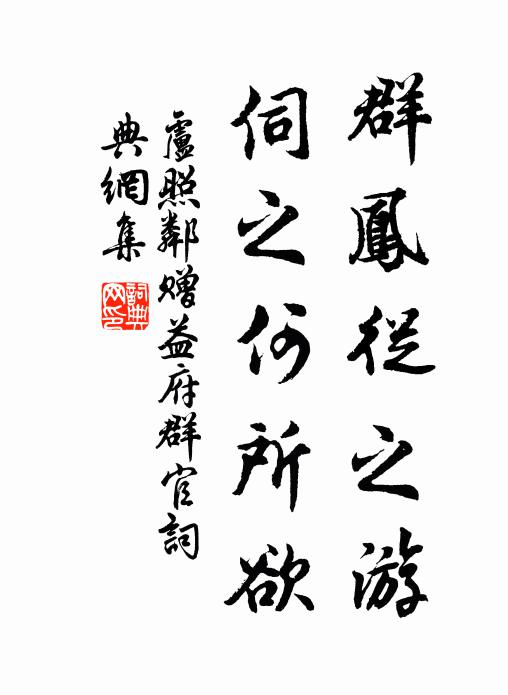 群鳳從之游
伺之何所欲
盧照鄰贈益府群官詞
典網集
詞典网印